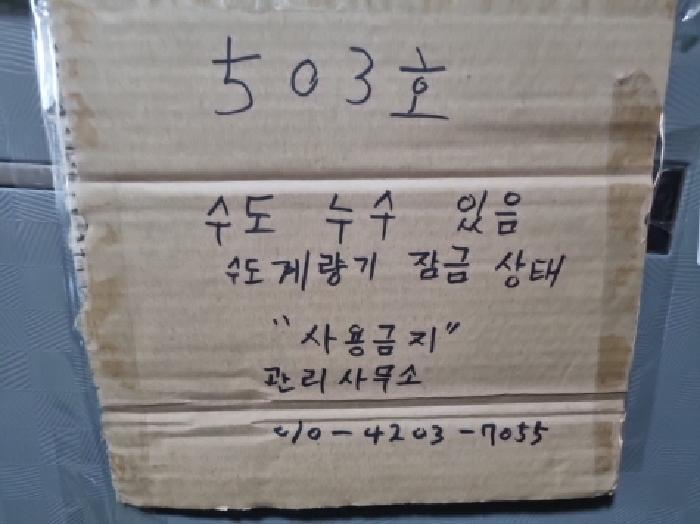 503호
수도 누수 있음
수도계량기 잠금 상태
"사용금지"
관리사무소
010-4203-7055